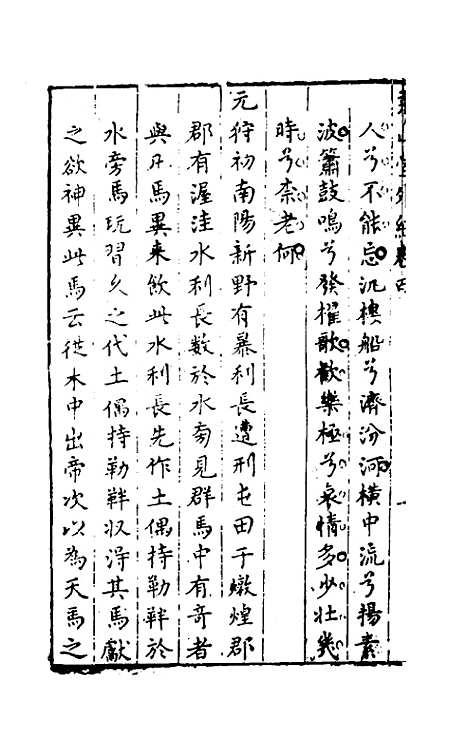 人兮不能忘汎樓船兮濟汾河橫中流兮揚素
波簫鼓鳴兮發櫂歌歡樂極兮哀情多少壯幾
時兮柰老何
元狩初南陽新野有暴利長遭刑屯田于燉煌郡
郡有渥洼水利長數於水旁見群馬中有奇者
與凡馬異来飲此水利長先作土偶持勒靽於
水旁馬玩習久之代土偶持勒靽収得其馬獻
之欲神異此馬云從水中出帝次以為天馬之